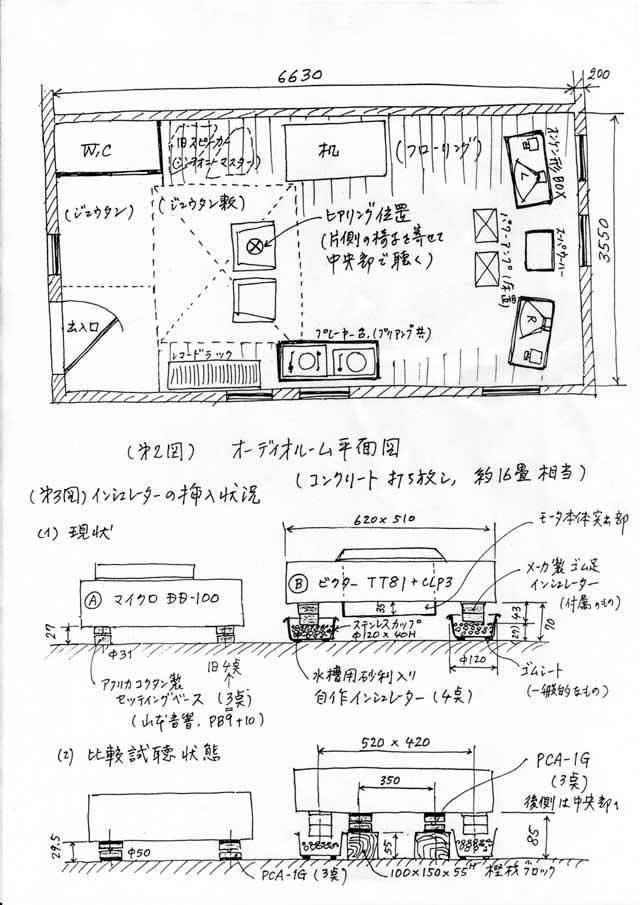 6630
200
W.C
旧スピーカー
机
(フローリング)
オンケン形BOX
L
(ジュウタン)
(ジュウタン敷)
ヒアリング位置
(片側の椅子を寄せて
中央部で聴く)
3550
R
出入口
レコードラック
プレーヤー台,(プリアンプ共)
(第2図) オーディオルーム平面図
(コンクリート打ち放し, 約16畳相当)
(第3図)インシュレーターの挿入状況
(1) 現状
620×510
モータ本体突出部
Ⓐ マイクロ DD-100
Ⓑ ビクター TT81+CLP3
メーカ製ゴム足
インシュレーター
(付属のもの)
35
27
ステンレスカップ
Φ120×40H
43
(27)
70
Φ31
旧4点
アフリカコクタン製
セッティングベース (3点)
(山本音響, PB9+10)
水槽用砂利入り
自作インシュレーター (4点)
Φ120
ゴムシート
(一般的なもの)
(2) 比較試聴状態
520×420
350
PCA-1G
(3点)
後側は中央部1
29.5
Φ50
55
85
PCA-1G (3点)
100×150×55H 樫材ブロック